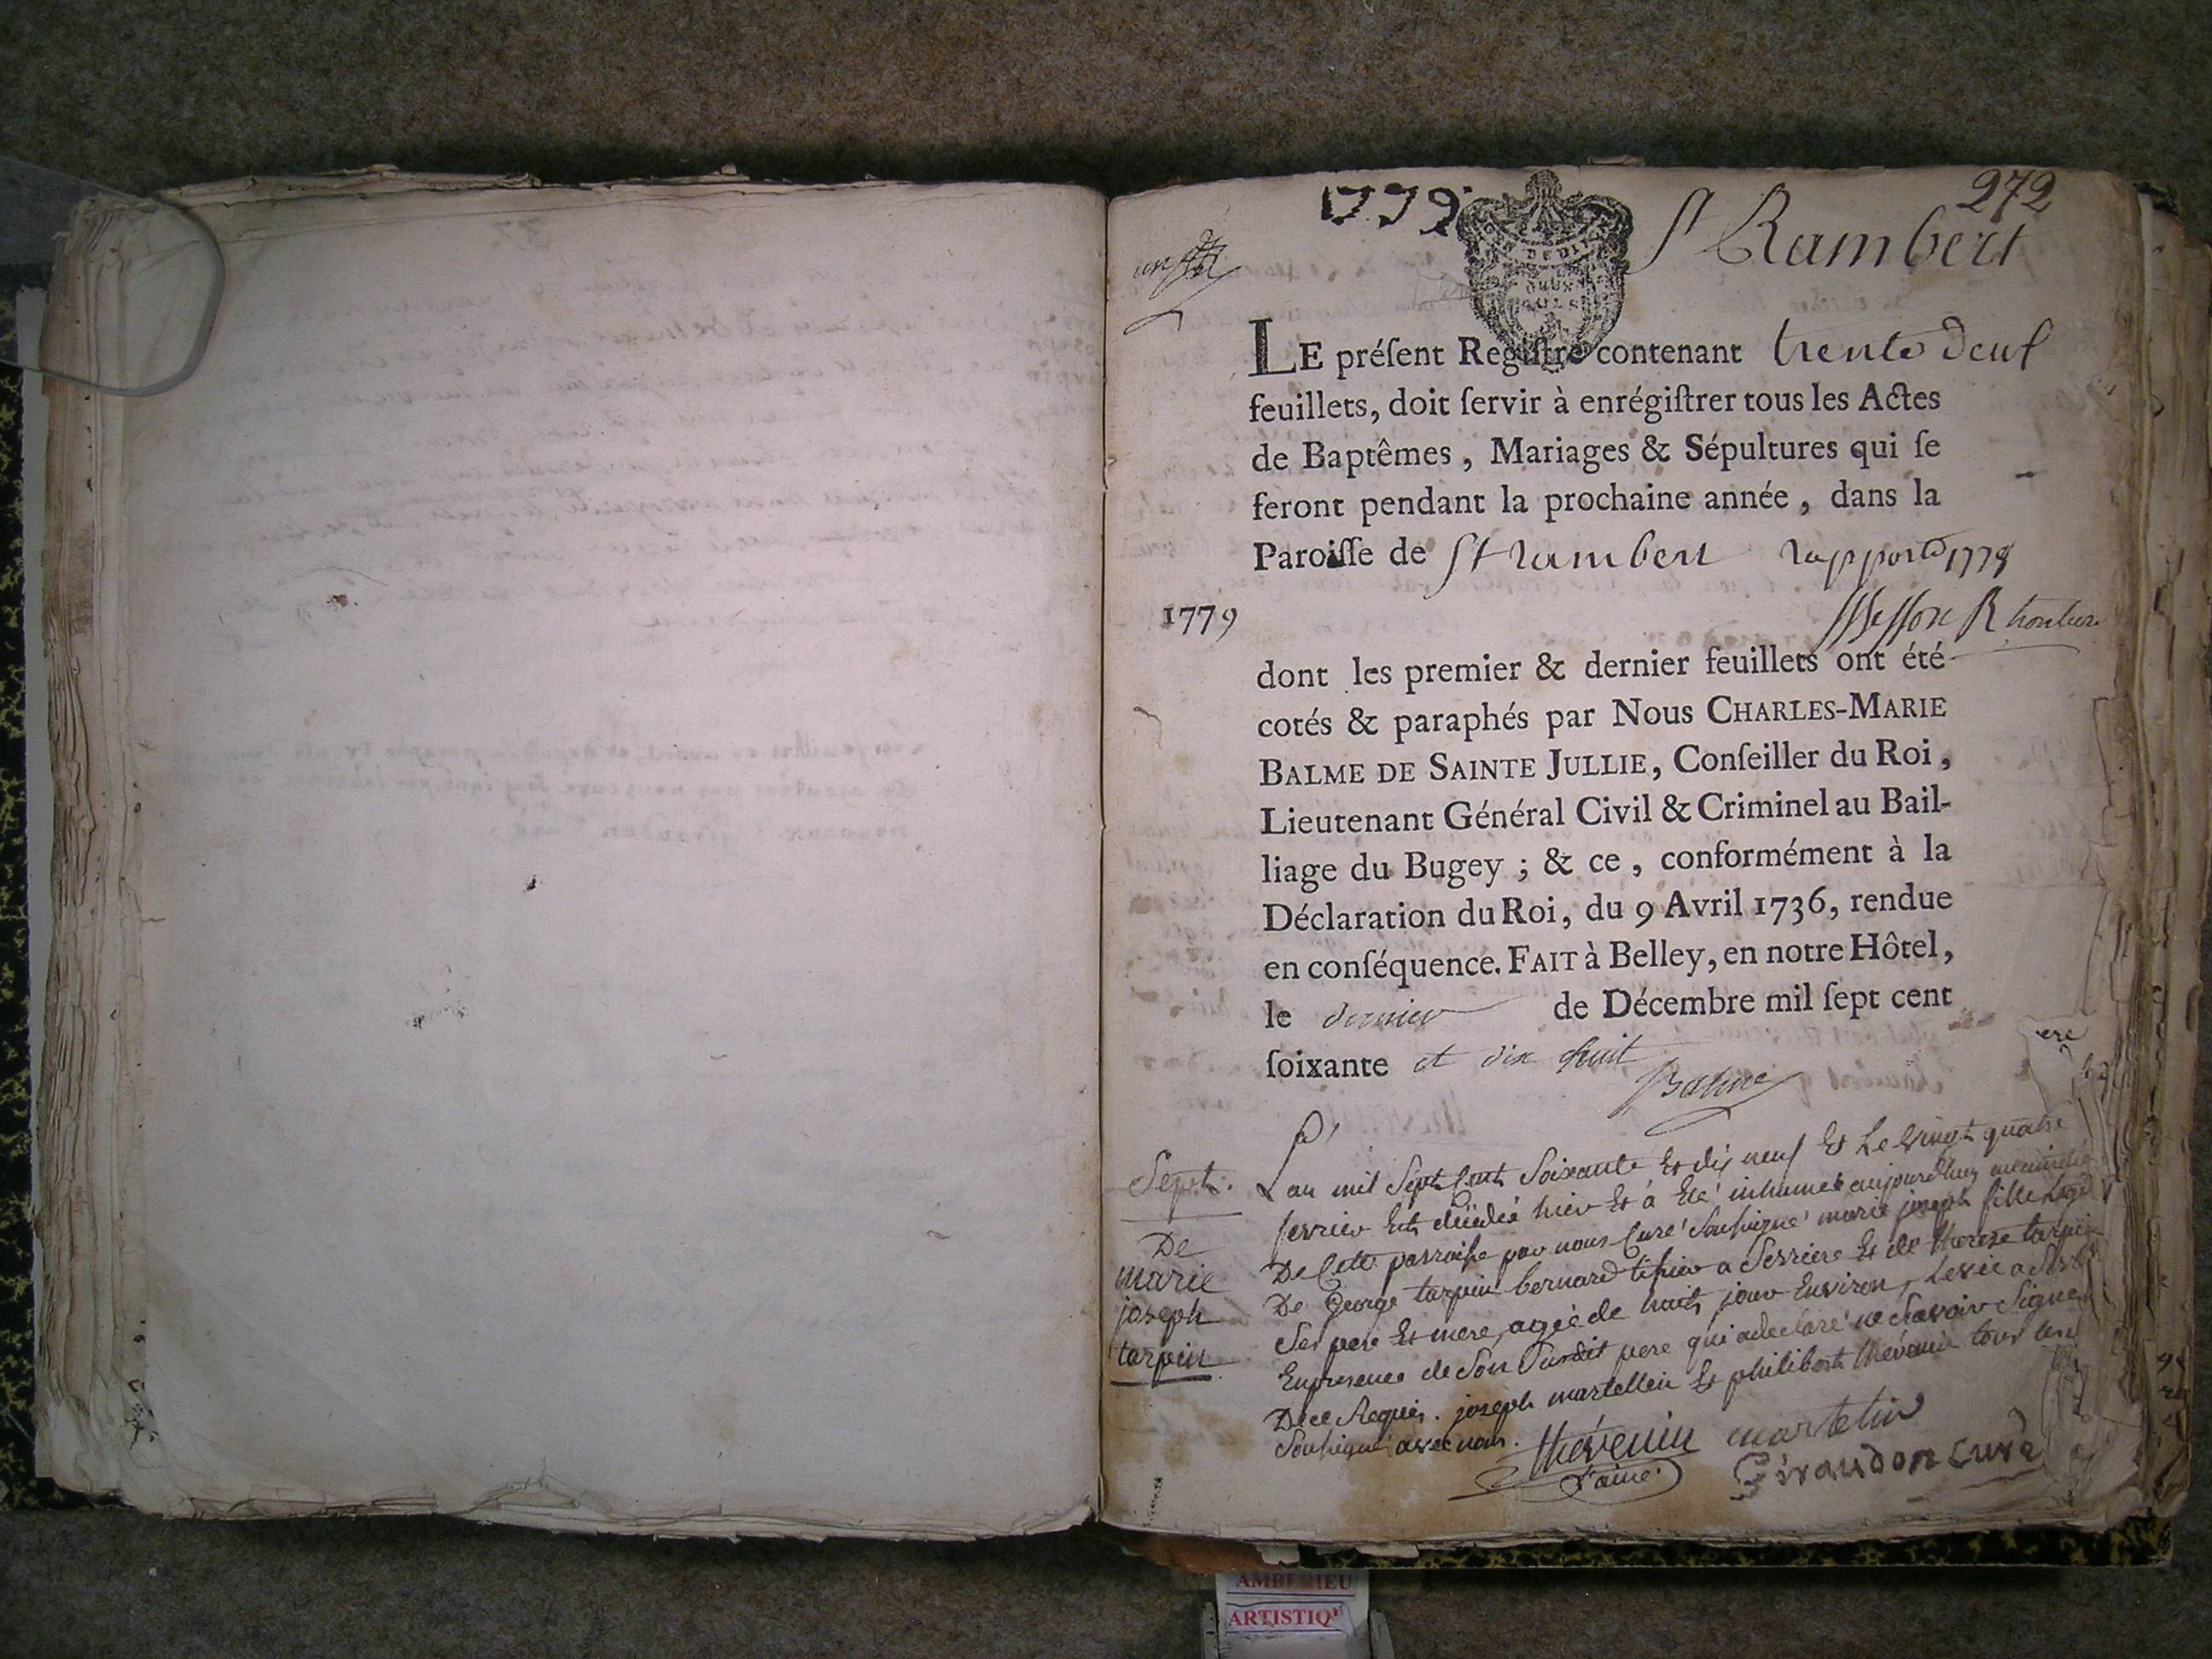 1779
272
St Rambert
un
LE préſent Regiſtre contenant trente deux
feuillets, doit ſervir à enrégiſtrer tous les Actes
de Baptêmes, Mariages & Sépultures qui ſe
feront pendant la prochaine année, dans la
Paroiſſe de St rambert rapporté 1779
1779
dont les premier & dernier feuillets ont été
cotés & paraphés par Nous CHARLES-MARIE
BALME DE SAINTE JULLIE, Conſeiller du Roi,
Lieutenant Général Civil & Criminel au Bail-
liage du Bugey ; & ce, conformément à la
Déclaration du Roi, du 9 Avril 1736, rendue
en conſéquence. FAIT à Belley, en notre Hôtel,
le dernier de Décembre mil ſept cent
ſoixante et dix huit
Balme
Sept.
De
marie
joseph
tarpin
L'an mil Sept Cent Soixante Et dix neuf Et Le Vingt quatre
fevrier Est décédée hier Et a Eté inhumée aujourdhuy au cimetiere
De Cette parroisse par nous Curé Soussigné marie joseph fille
De George tarpin bernard tissier a Serriere Et de therese tarpin
Ses pere Et mere, agée de huit jour Environ, Levée a
En presence de Son Susdit pere qui a declaré ne Scavoir Signer
De ce Requis. joseph martellin Et philibert thévenin
Soussigné avec nous.
thévenin martelin
l'ainé
Giraudon curé
AMBERIEU
ARTISTIQ